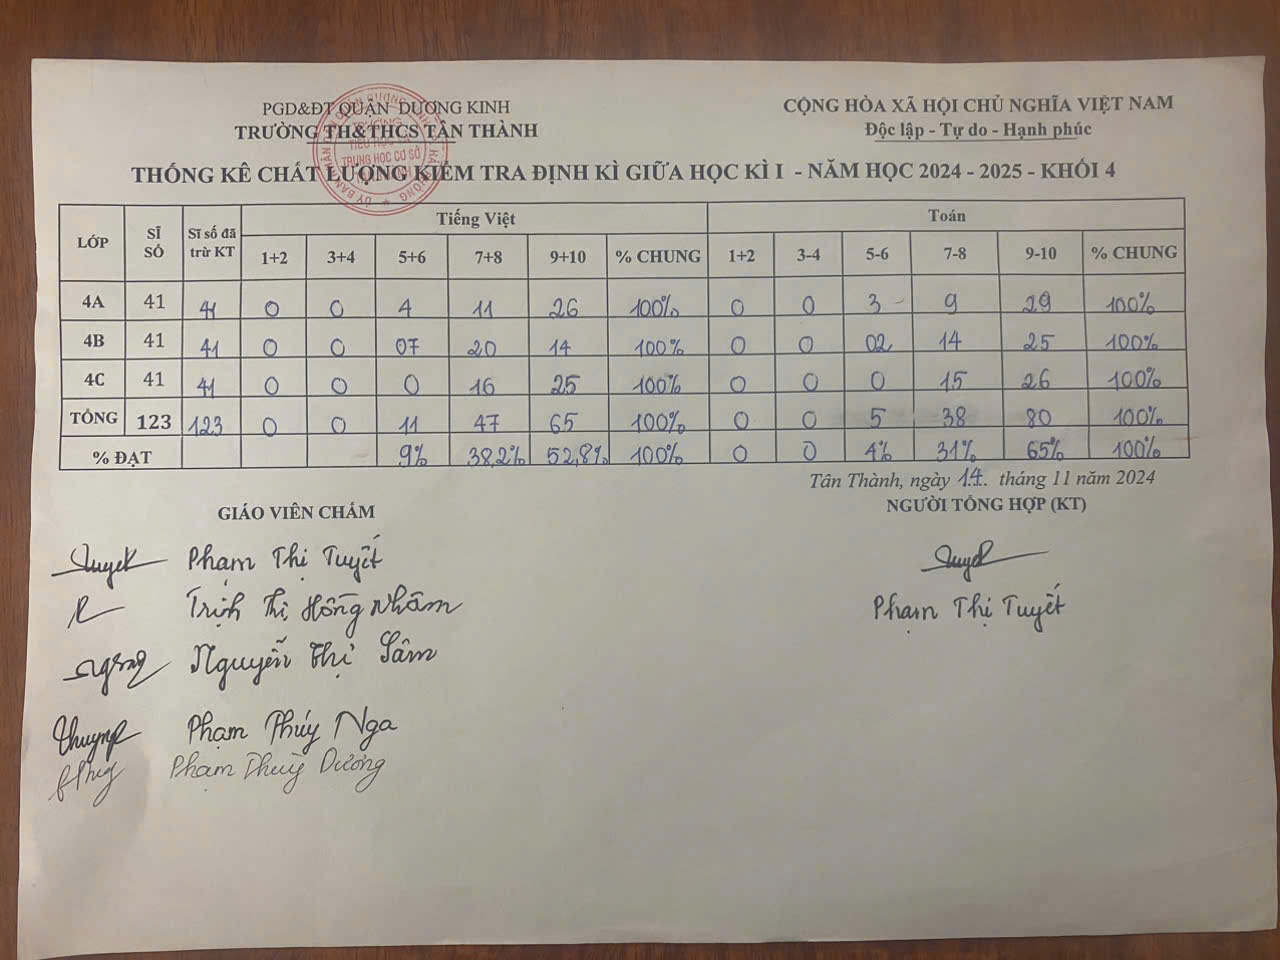 PGD&ĐT QUẬN DƯƠNG KINH
TRƯỜNG TH&THCS TÂN THÀNH
CỘNG HÒA XÃ HỘI CHỦ NGHĨA VIỆT NAM
Độc lập - Tự do - Hạnh phúc
THỐNG KÊ CHẤT LƯỢNG KIỂM TRA ĐỊNH KÌ GIỮA HỌC KÌ I - NĂM HỌC 2024 - 2025 - KHỐI 4
LỚP SĨ SỐ Sĩ số đã trừ KT Tiếng Việt Toán
1+2 3+4 5+6 7+8 9+10 % CHUNG 1+2 3-4 5-6 7-8 9-10 % CHUNG
4A 41 41 0 0 4 11 26 100% 0 0 3 9 29 100%
4B 41 41 0 0 07 20 14 100% 0 0 02 14 25 100%
4C 41 41 0 0 0 16 25 100% 0 0 0 15 26 100%
TỔNG 123 123 0 0 11 47 65 100% 0 0 5 38 80 100%
% ĐẠT 9% 38,2% 52,8% 100% 0 0 4% 31% 65% 100%
Tân Thành, ngày 14 tháng 11 năm 2024
GIÁO VIÊN CHẤM
NGƯỜI TỔNG HỢP (KT)
Tuyết Phạm Thị Tuyết
Trịnh Thị Hồng Nhâm
Nguyễn Thị Sâm
Phạm Thúy Nga
Phạm Thuỳ Dương
Tuyết
Phạm Thị Tuyết
TRƯỜNG
TIỂU HỌC
TRUNG HỌC CƠ SỞ